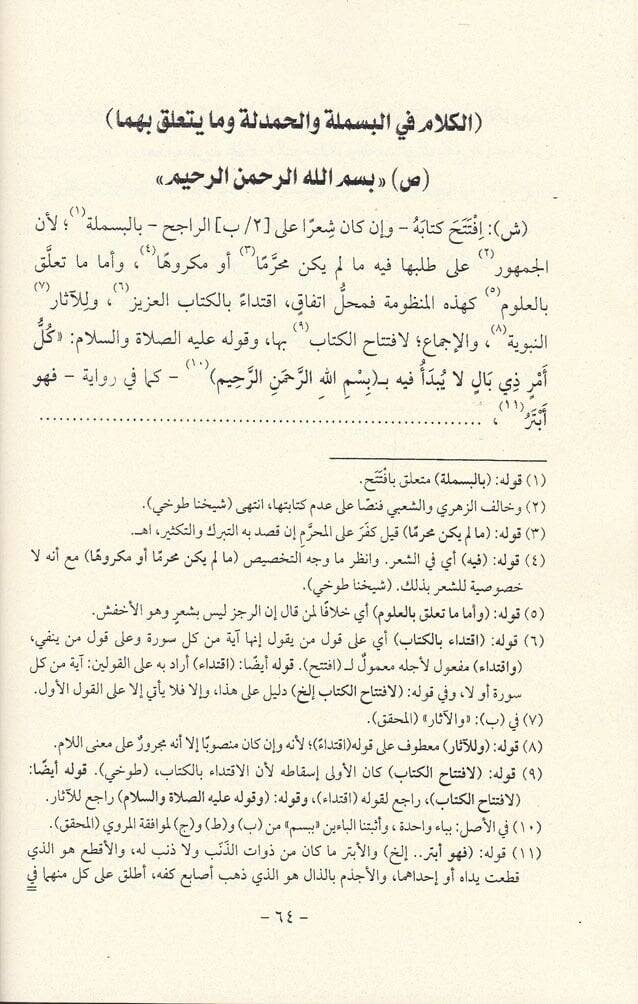 (الكلام في البسملة والحمدلة وما يتعلق بهما)
(ص) «بسم الله الرحمن الرحيم»
(ش): اِفْتَتَحَ كتابَهُ – وإن كان شِعرًا على [٢/ ب] الراجح – بالبسملة(١)؛ لأن
الجمهور(٢) على طلبها فيه ما لم يكن محرَّمًا(٣) أو مكروهًا(٤)، وأما ما تعلَّق
بالعلوم(٥) كهذه المنظومة فمحلُّ اتفاقٍ، اقتداءً بالكتاب العزيز(٦)، ولِلآثار(٧)
النبوية(٨)، والإجماع؛ لافتتاح الكتاب(٩) بها، وقوله عليه الصلاة والسلام: «كُلُّ
أَمْرٍ ذِي بَالٍ لا يُبدَأُ فيه بـ(بِسْمِ اللهِ الرَّحمَنِ الرَّحِيمِ)(١٠) – كما في رواية – فهو
أَبْتَرُ(١١)، ................................................
(١) قوله: (بالبسملة) متعلق بافْتَتَح.
(٢) وخالف الزهري والشعبي فنصّا على عدم كتابتها، انتهى (شيخنا طوخي).
(٣) قوله: (ما لم يكن محرمًا) قيل كفَرَ على المحرَّمِ إن قصد به التبرك والتكثير، اهـ.
(٤) قوله: (فيه) أي في الشعر. وانظر ما وجه التخصيص (ما لم يكن محرمًا أو مكروهًا) مع أنه لا
خصوصية للشعر بذلك. (شيخنا طوخي).
(٥) قوله: (وأما ما تعلق بالعلوم) أي خلافًا لمن قال إن الرجز ليس بشعرٍ وهو الأخفش.
(٦) قوله: (اقتداء بالكتاب) أي على قول من يقول إنها آية من كل سورة وعلى قول من ينفي،
(واقتداء) مفعول لأجله معمولٌ لـ (افتتح). قوله أيضًا: (اقتداء) أراد به على القولين: آية من كل
سورة أو لا، وفي قوله: (لافتتاح الكتاب إلخ) دليل على هذا، وإلا فلا يأتي إلا على القول الأول.
(٧) في (ب): «والآثار» (المحقق).
(٨) قوله: (وللآثار) معطوف على قوله(اقتداءً)؛ لأنه وإن كان منصوبًا إلا أنه مجرورٌ على معنى اللام.
(٩) قوله: (لافتتاح الكتاب) كان الأولى إسقاطه لأن الاقتداء بالكتاب، (طوخي). قوله أيضًا:
(لافتتاح الكتاب)، راجع لقوله (اقتداء)، وقوله: (وقوله عليه الصلاة والسلام) راجع للآثار.
(١٠) في الأصل: بباء واحدة ، وأثبتنا الباءين «ببسم» من (ب) و(ط) و(ج) لموافقة المروي (المحقق).
(١١) قوله: (فهو أبتر.. إلخ) والأبتر ما كان من ذوات الذَنَب ولا ذنب له، والأقطع هو الذي
قطعت يداه أو إحداهما، والأجذم بالذال هو الذي ذهب أصابع كفه، أطلق على كل منهما في
– ٦٤ –